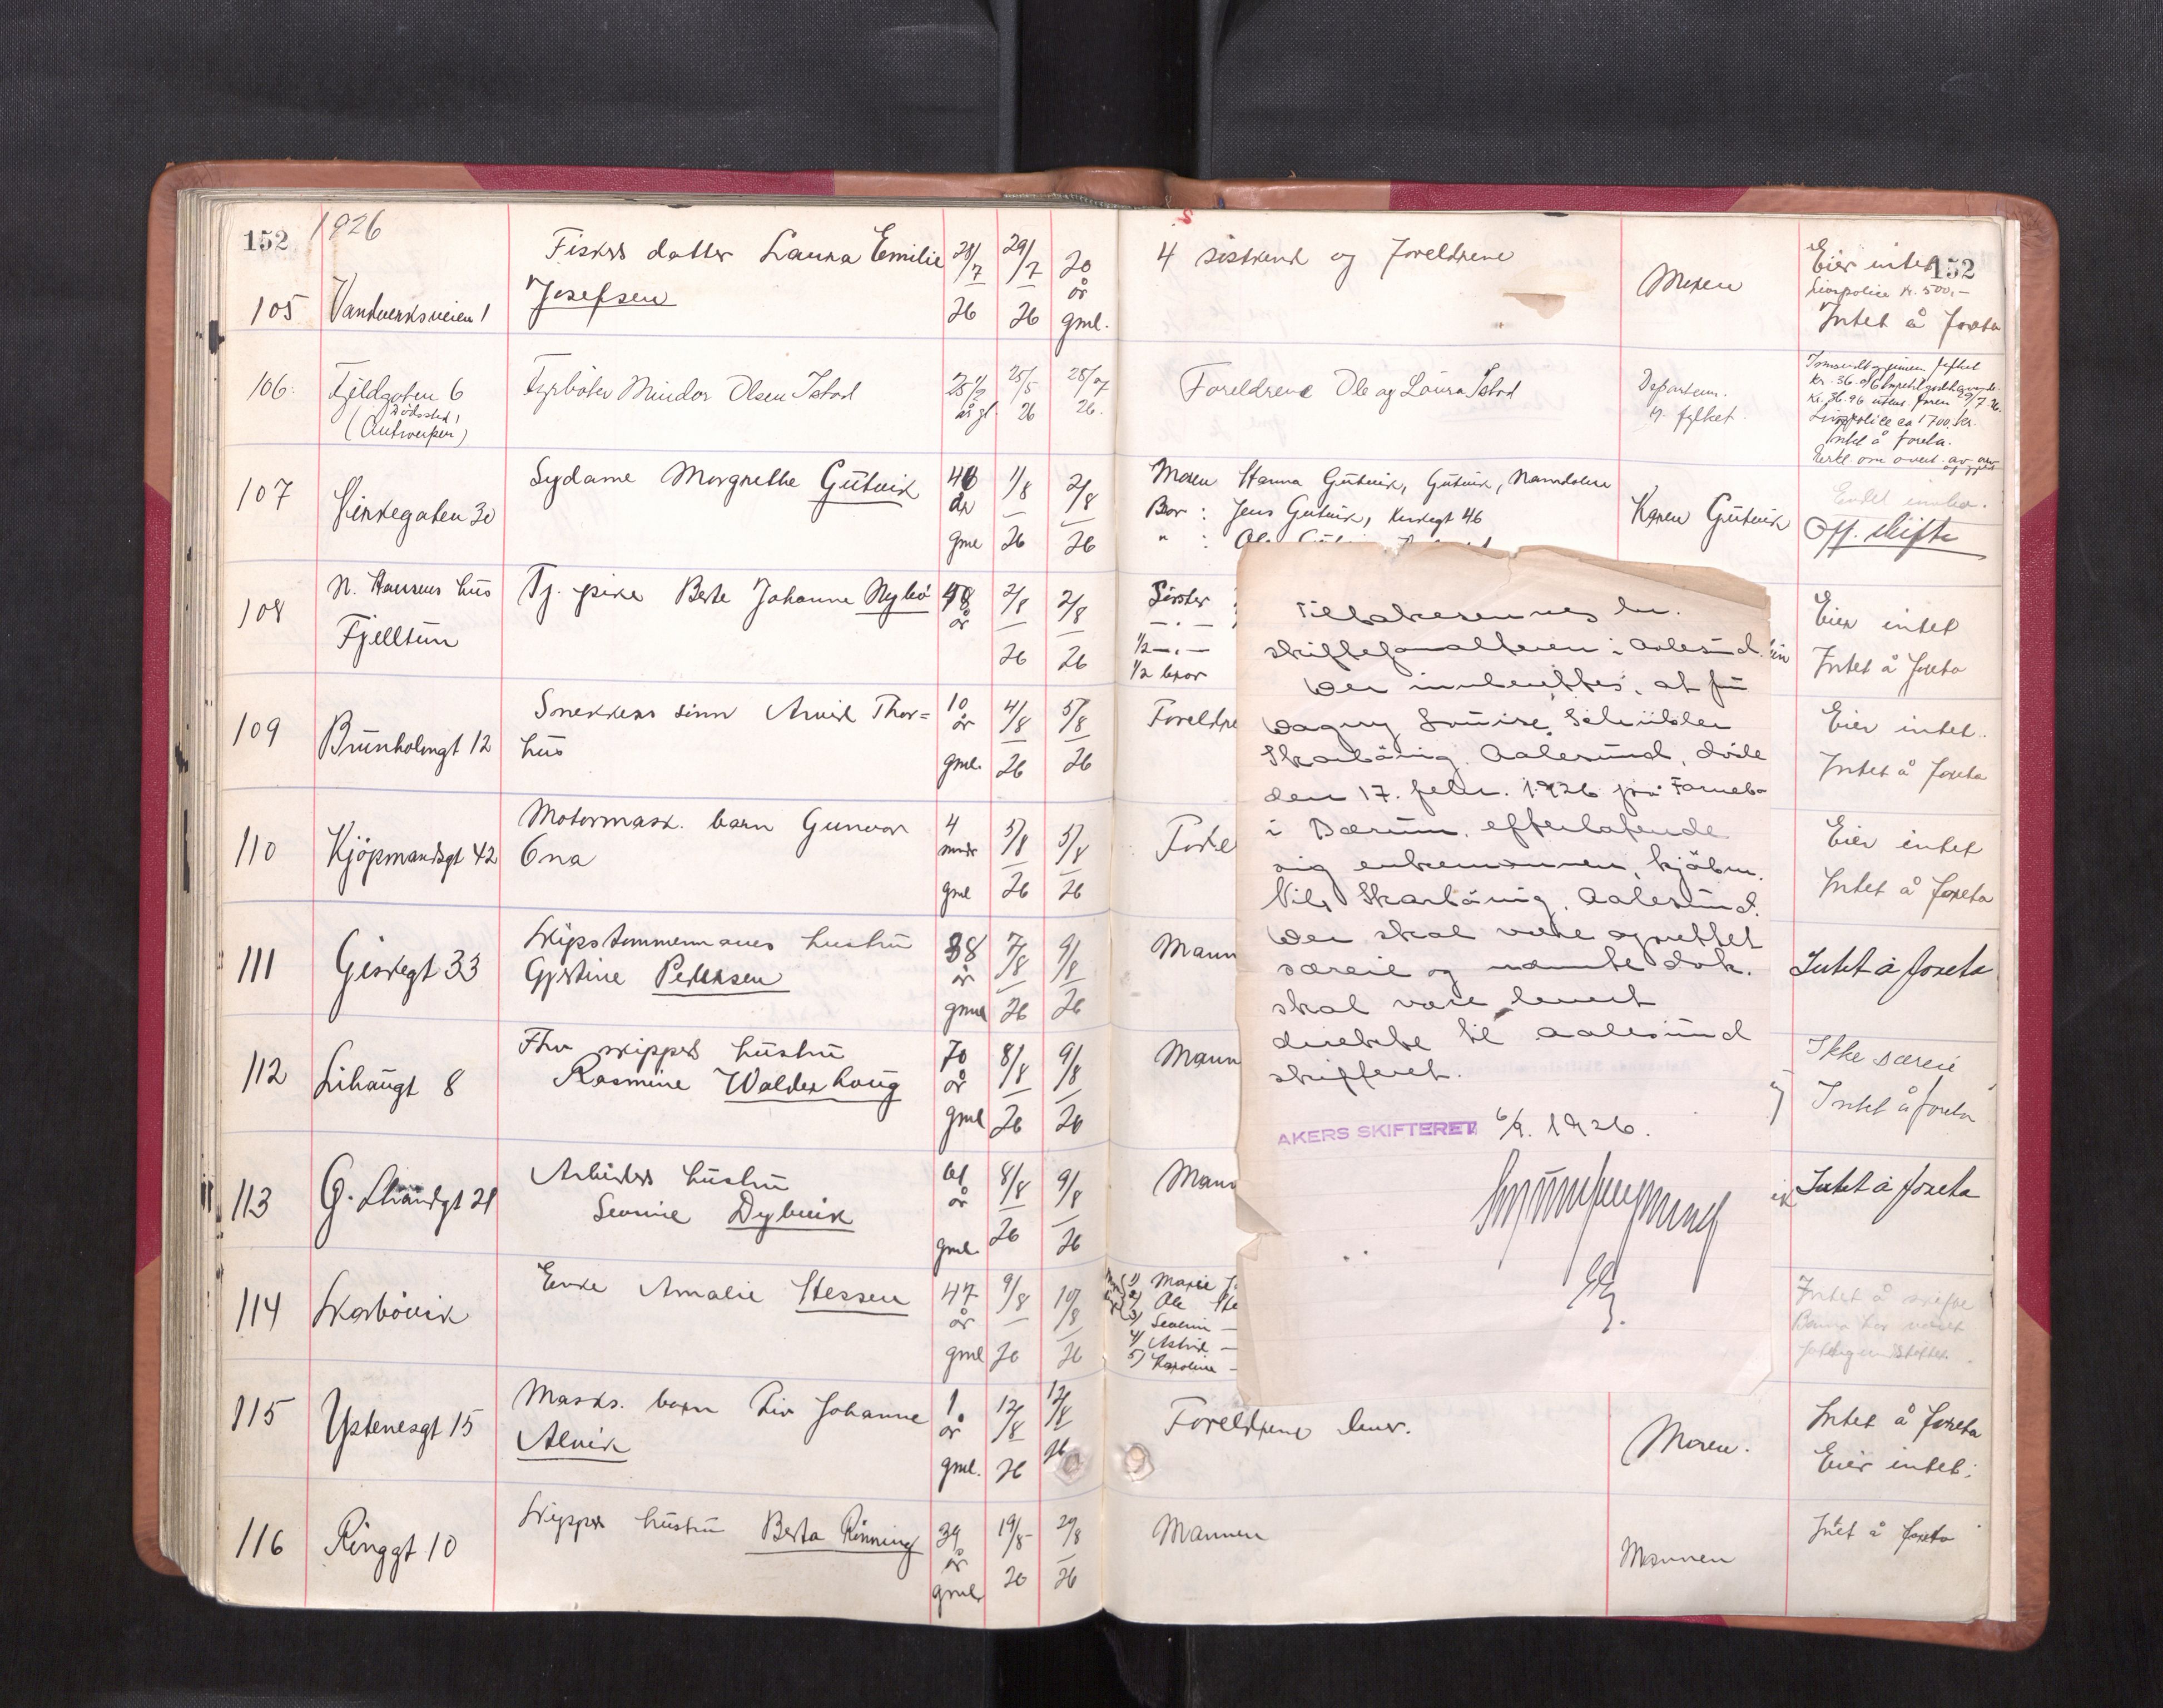 152 1926
105 Vandverksveien 1
Fiskers datter Laura Emilie
Josefsen
28/7 26
29/7 26
20 år gml.
4 søskend og foreldrene
Moren
Eier intet
152
Livspolice kr. 500,-
Intet å foreta
106. Fjeldgaten 6
Dödssted
(Antwerpen)
Fyrböter Mindor Olsen Istad
25 1/2 år gl.
25/5 26
28/7 26.
Foreldrene Ole og Laura Istad
Departem.
og fylket.
Livspolice ca 1700 kr.
Intet å foreta.
107 Kirkegaten 30
Sydame Margrethe Gütvik
år gml
1/8 26
2/8 26
Moren Hanna Gütvik, Gütvik, Namdalen
Bror: Jens Gutvik, Kirkegt 46
" :
Karen Gütvik
Endel innbo.
Off. skifte
108 N. Hansens hüs
Fjelltün
Tj. pike Berte Johanne Nybö
48 år
2/8 26
2/8 26
Søster
—.—
1/2 —.—
1/2 bror
Eier intet
Intet å foreta
109 Brunholmgt 12
Snekkers sönn Arvid Thor=
hüs
10 år gml.
4/8 26
5/8 26
Foreldre
Eier intet.
Intet å foreta
110 Kjöpmandsgt 42
Motormask. barn Gunvor
Ona
4 mndr gml
5/8 26
5/8 26
Fore
Eier intet
Intet å foreta
111 Giskegt 33
Skipstømmermanns hustrü
Gjertine Petersen
38 år gml
7/8 26
9/8 26
Mann
Intet å foreta
112 Lihaugt 8
Fhv skippers hüstrü
Rasmine Walderhoug
70 år gml
8/8 26
9/8 26
Mann
Ikke særeie
Intet å foreta
113 G. Strandgt 21
Arbeiders hüstrü
Sevrine Dybvik
61 år gml.
8/8 26
9/8 26
Mann
Intet å foreta
114 Skarbövik
Enke Amalie Stessen
47 år gml
9/8 26
10/8 26
1) Marie
2) Ole Ste
3) Severin —
4) Astrid —
5) Karoline —
Intet å skifte
115 Ystenesgt 15
Masks. barn Liv Johanne
Alvik
1 år gml.
12/8 26
12/8 26
Foreldrene lever.
Moren.
Intet å foreta
Eier intet.
116 Ringgt 10
Skippers hüstrü Berta Rønning
39 år gml
19/8 26
20/8 26
Mannen
Mannen
Intet å foreta
Tilbakesendes hr.
skifteforvalteren i Aalesund.
Der innberettes, at frü
Dagny Louise Schübeler
Skarbövig, Aalesund, döde
den 17. febr. 1926 på Fornebo
i Bærum, efterlatende
sig enkemannen, kjöbm.
Nils Skarbövig, Aalesünd.
Der skal være oprettet
særeie og nævnte dok.
skal være levert
direkte til Aalesünd
skifterett.
AKERS SKIFTERET 6/9. 1926.